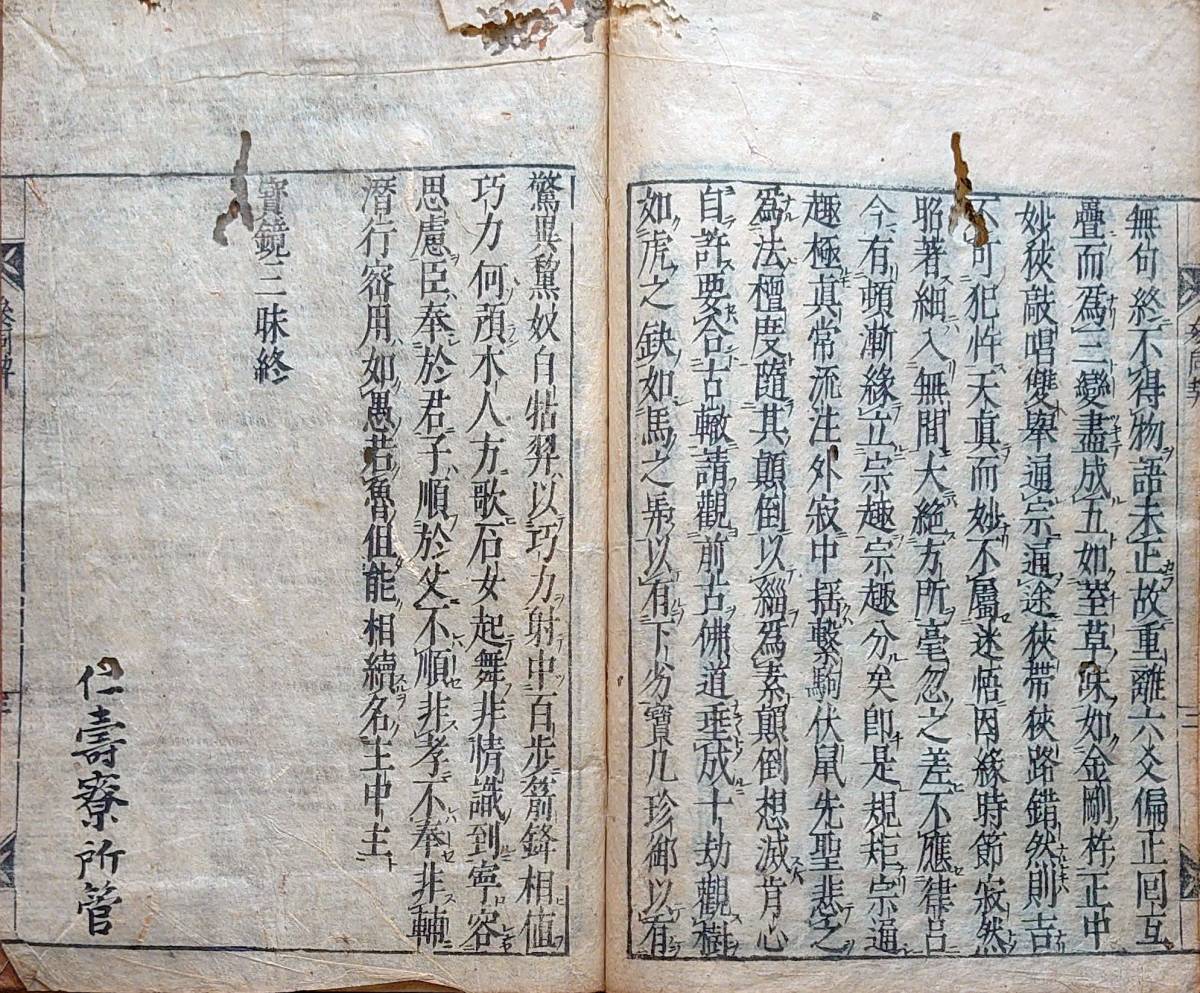 無句終不得物語未正故重離六爻偏正回互
疊而爲三變盡成五如荎草味如金剛杵正中
妙挾敲唱雙舉通宗通途挾帶挾路錯然則吉
不可犯忤天眞而妙不屬迷悟因緣時節寂然
昭著細入無間大絶方所毫忽之差不應律呂
今有頓漸緣立宗趣宗趣分矣即是規矩宗通
趣極眞常流注外寂中搖繫駒伏鼠先聖悲之
爲法檀度隨其顚倒以緇爲素顚倒想滅肯心
自許要合古轍請觀前古佛道垂成十劫觀樹
如虎之缺如馬之馵以有下劣寶几珍御以有
驚異黧奴白牯羿以巧力射中百步箭鋒相値
巧力何預木人方歌石女起舞非情識到寧容
思慮臣奉於君子順於父不順非孝不奉非輔
潛行密用如愚若魯但能相續名主中主
寶鏡三昧終
仁壽寮所管